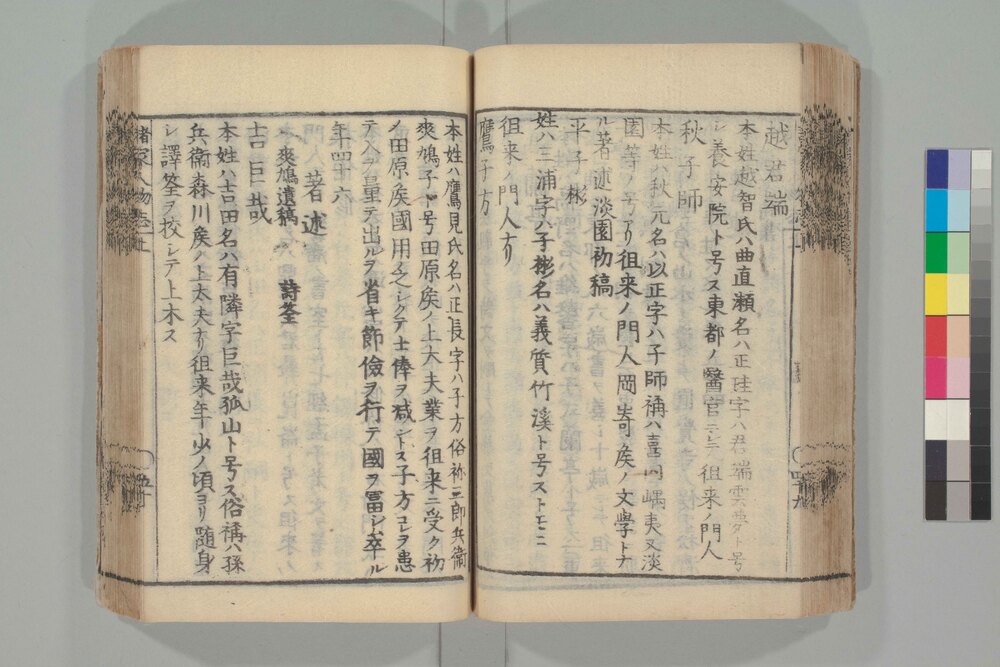 越君瑞
本姓越智氏ハ曲直瀬名ハ正珪字ハ君瑞雲夢ト号
シ養安院ト号ス東都ノ醫官ニシテ徂来ノ門人
秋子師
本姓ハ秋元名ハ以正字ハ子師稱ハ喜内嵎夷又淡
園等ノ号アリ徂来ノ門人岡崎矦ノ文學トナ
ル著述淡園初稿
平子彬
姓ハ三浦字ハ子彬名ハ義質竹溪ト号ストモニ
徂来ノ門人ナリ
鷹子方
本姓ハ鷹見氏名ハ正長字ハ子方俗称三郎兵衛
爽鳩子ト号田原矦ノ上大夫業ヲ徂来ニ受ク初
ノ田原矦國用乏シクテ士俸ヲ减ントス子方コレヲ患
テ入ヲ量テ出ルヲ省キ節儉ヲ行テ國ヲ冨シム卒ル
年四十六
著述
爽鳩遺稿 詩筌
吉臣哉
本姓ハ吉田名ハ有隣字臣哉孤山ト号ス俗稱ハ孫
兵衛森川矦ノ上大夫ナリ徂来年少ノ頃ヨリ随身
シ譯筌ヲ校シテ上木ス
諸家人物志 上
五十
四十九